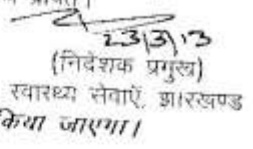 23/3/13
(निदेशक प्रमुख)
स्वास्थ्य सेवाऐं, झारखण्ड
किया जाएगा।